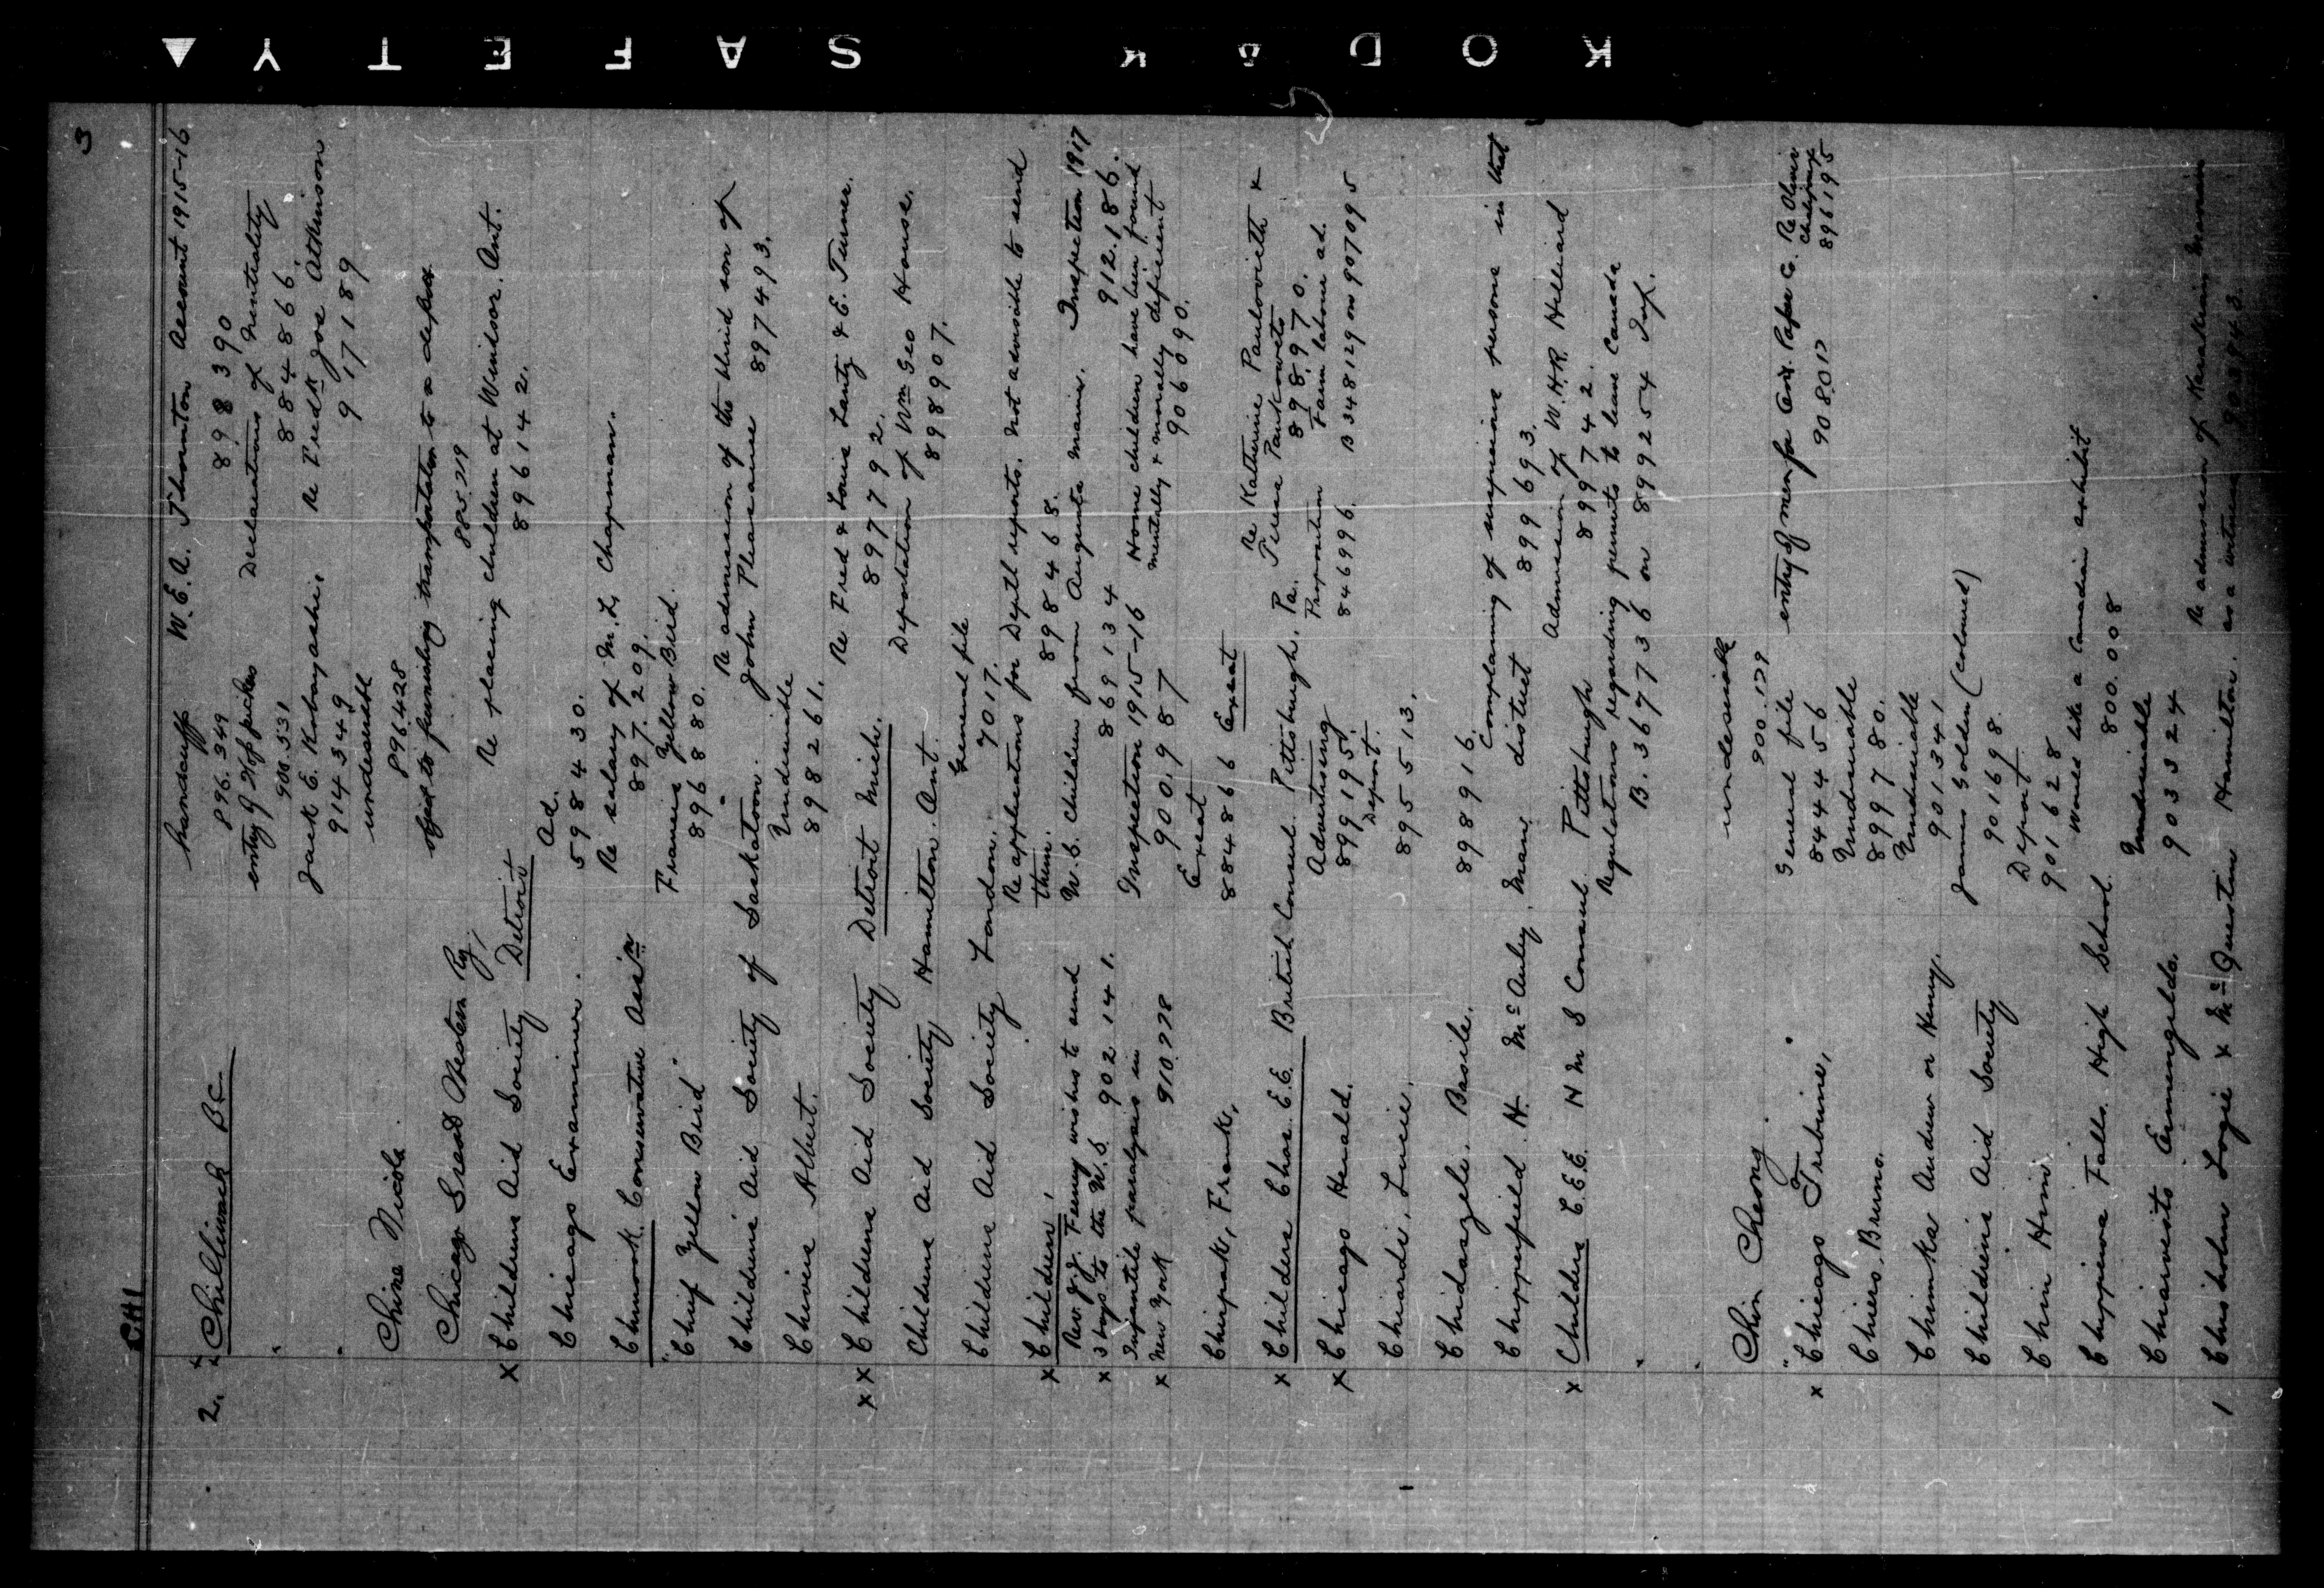 KODAK SAFETY
3
CHI
2. Chilliwack B.C. Handcuffs W.E.A. Thornton Account 1915-16
896.349 898390
" entry of Hop pickers Declarations of Neutrality
900.531 884866.
" Jack E. Kobayashi. Re Fredk Joe Atkinson
914349 917189
Chise Nicola. undesirable
896428
Chicago Great Western Ry, object to furnishing transportation to a deport
885.719
x Childrens Aid Society Detroit Re placing children at Windsor. Ont.
896142.
Chicago Examiner. Ad.
598430.
Chinook Conservative Ass'n Re salary of M.L. Chapman.
897.209.
"Chief Yellow Bird" Francis Yellow Bird.
896880.
Childrens Aid Society of Saskatoon. Re admission of the blind son of
John Pleasance 897493.
Chivers Albert. Undesirable
898261.
x x Childrens Aid Society Detroit Mich. Re Fred & Louis Lantz & E. Turner.
897792.
Childrens Aid Society Hamilton. Ont. Deportation of Wm Geo House.
898907.
Childrens Aid Society London. General file
7017.
x Children, Re applications for Deptl reports. Not advisable to send
them. 898468.
Rev. J.J. Feeny wishes to send U.S. children from Augusta Maine. Inspection 1917
x 3 boys to the U.S. 902141. 869134 912.186.
Infantile paralysis in Inspection 1915-16 Home children have been found
x New York 910778 900.987 mentally & morally deficient
906090.
Chirpak, Frank, Exeat
884866 Exeat
x Childers Chas. E.E. British Consul. Pittsburgh, Pa. Re Katherine Paulovieth x
Teresa Pankowets
898970.
x Chicago Herald. Advertising Proposition Farm labour ad.
899195. 846996. B348129 on 907095
Chiardi, Lucie. Deport.
895513.
Chidaszeli, Basile. 898916.
Chipperfield H. McAuley, Man, district Complaining of suspicious persons in that
899693.
x Childers C.E.E. H M S Consul Pittsburgh Admission of W.H.R. Hilliard
899742.
" Regulations regarding permits to leave Canada
B.367736 on 899254 Inf.
Chin Cheong undesirable
900.179
x "Chicago Tribune," General file entry of men for Ont. Paper Co. Re Oliver
844456 908017 896195
Chiers, Bruno. Undesirable
899780.
Chimka Andrew or Henry. Undesirable
901341
Childrens Aid Society James Golden (coloured)
901698.
Chin Honi Deport
901628
Chippewa Falls High School. Would like a Canadian exhibit
800.008
Chiarvesto Ermengildo. Undesirable
903324
1 Chisholm Logie & McQuesten Hamilton. Re admission of
as a witness